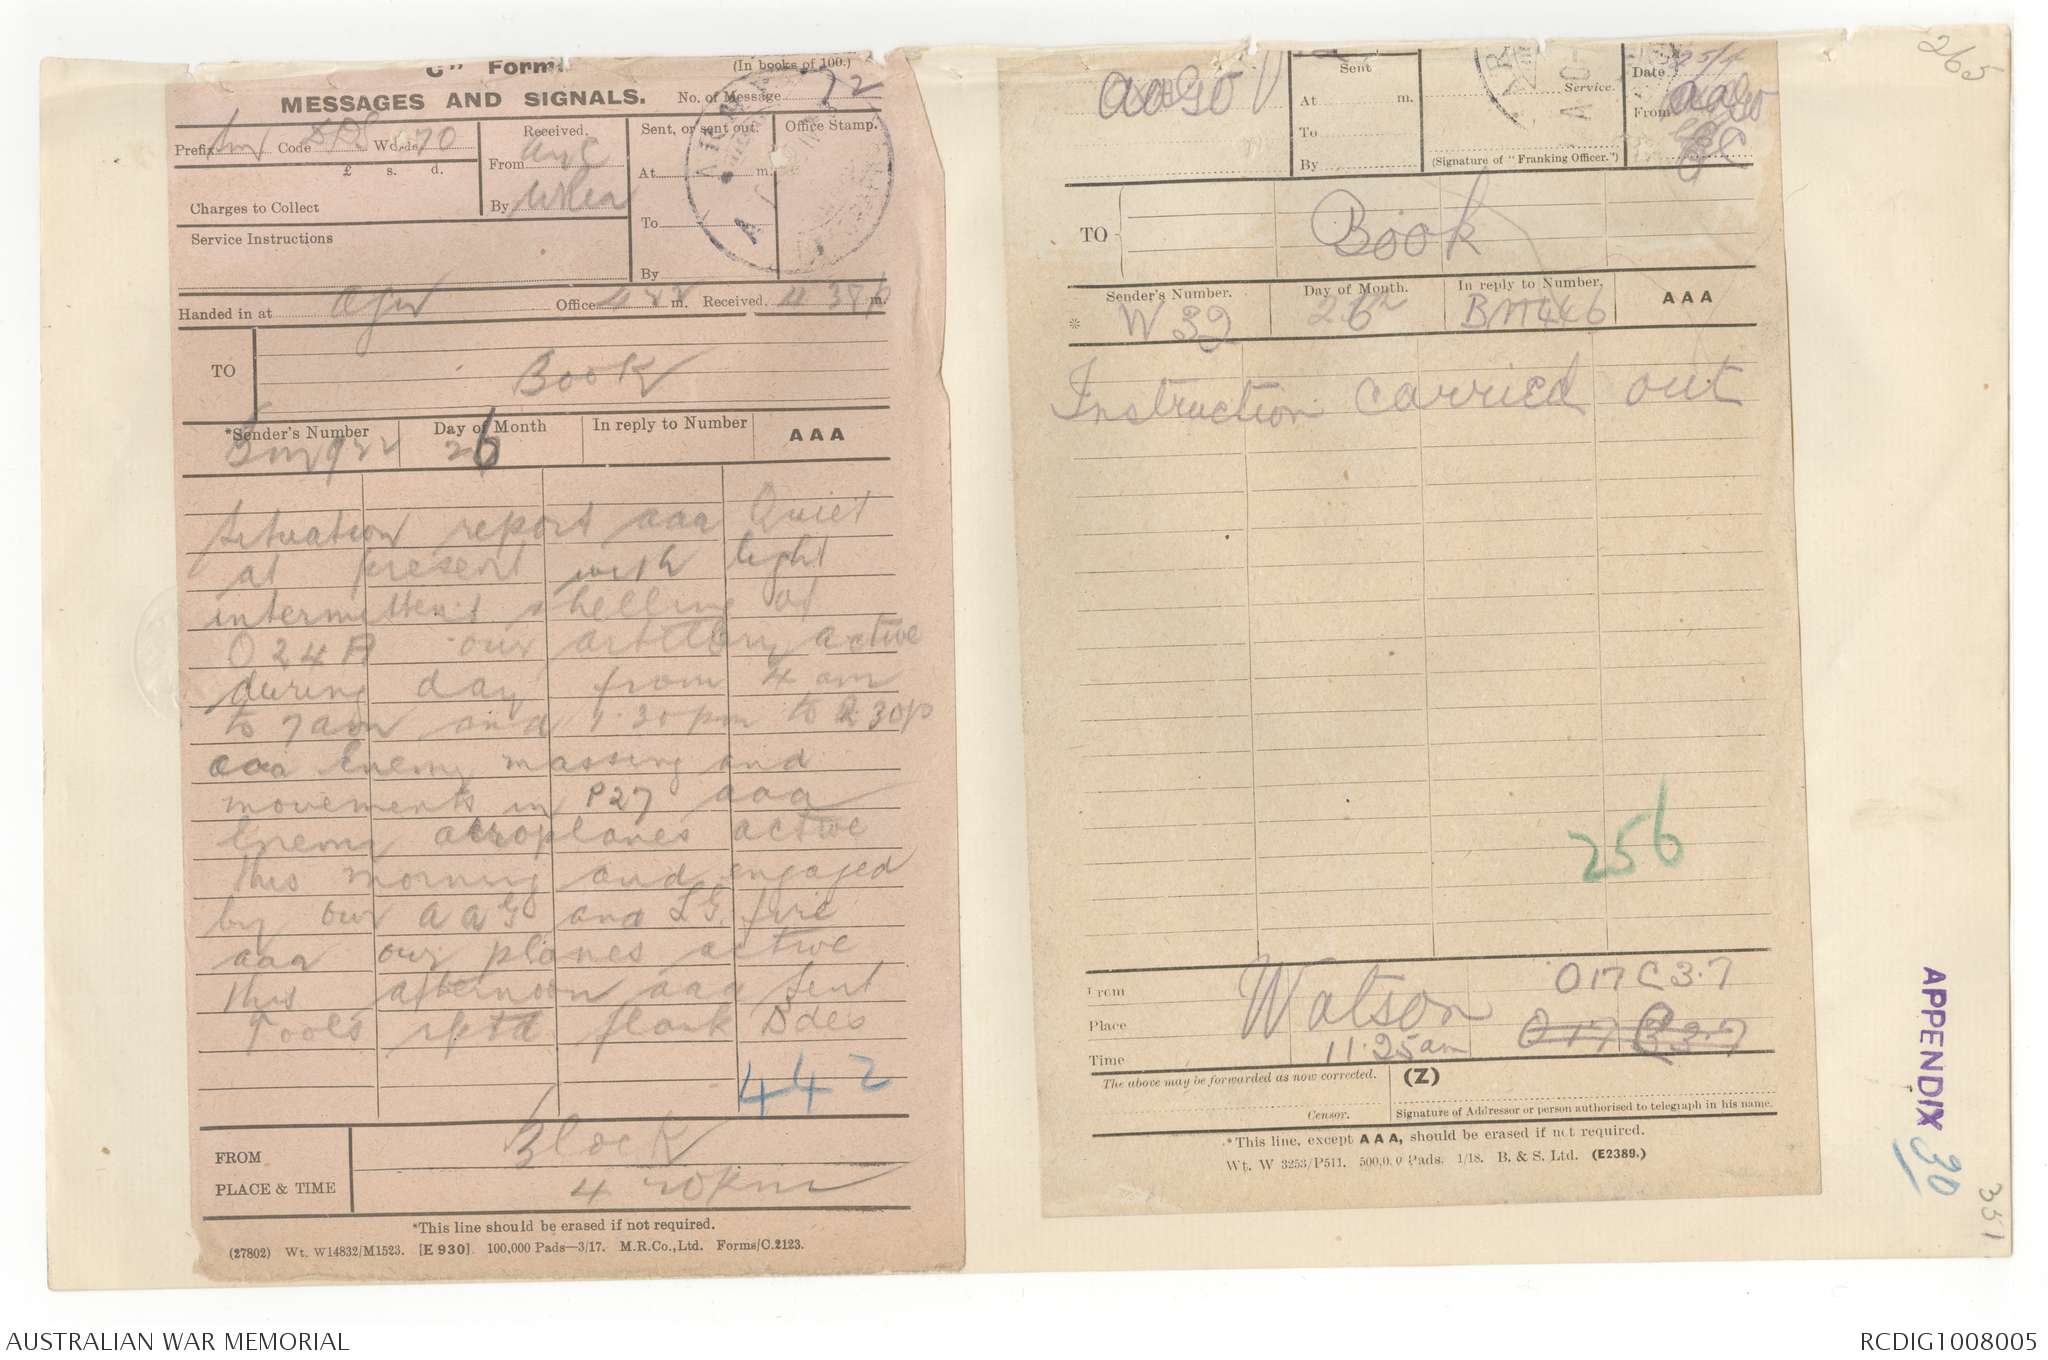 "C" Form.
(In books of 100.)
MESSAGES AND SIGNALS.
No. of Message 72
Prefix Sm Code Words 70
£ s. d.
Charges to Collect
Service Instructions
Received.
From
By
Sent, or sent out.
At m.
To
By
Office Stamp.
Handed in at Office m. Received. m.
TO
Book
*Sender's Number
Day of Month
In reply to Number
AAA
Bm 922 26
Situation report aaa Quiet
at present with light
intermittent shelling of
O 24 B our artillery active
during day from 4 am
to 7 am and 1.30 pm to 2 30 p
aaa Enemy massing and
movements in P27 aaa
Enemy aeroplanes active
this morning and engaged
by our AAG and LG. fire
aaa our planes active
this afternoon aaa Sent
Tools rptd flank Bdes
442
FROM
PLACE & TIME
Block
4 20 pm
*This line should be erased if not required.
(27802) Wt. W14832/M1523. [E 930]. 100,000 Pads—3/17. M.R.Co., Ltd. Forms/C.2123.
Sent
At m.
To
By
Service.
(Signature of "Franking Officer.")
Date 25/4
From
TO
Book
Sender's Number.
Day of Month.
In reply to Number.
AAA
* W 39 26th BM446
Instruction carried out
256
From
Place
Time
Watson
O17 C 3.7
O17 C 3.7
11.25 am
The above may be forwarded as now corrected.
(Z)
Censor.
Signature of Addressor or person authorised to telegraph in his name.
*This line, except AAA, should be erased if not required.
Wt. W 3253/P511. 500,000 Pads. 1/18. B. & S. Ltd. (E2389.)
265
APPENDIX 30
351
AUSTRALIAN WAR MEMORIAL
RCDIG1008005